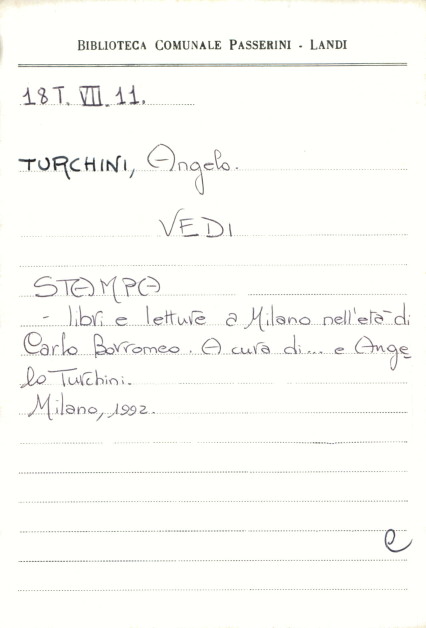 BIBLIOTECA COMUNALE PASSERINI - LANDI
18T. VII. 11.
TURCHINI, Angelo.
VEDI
STAMPA
- libri e letture a Milano nell'età di
Carlo Borromeo. A cura di... e Ange
lo Turchini.
Milano, 1992.
e